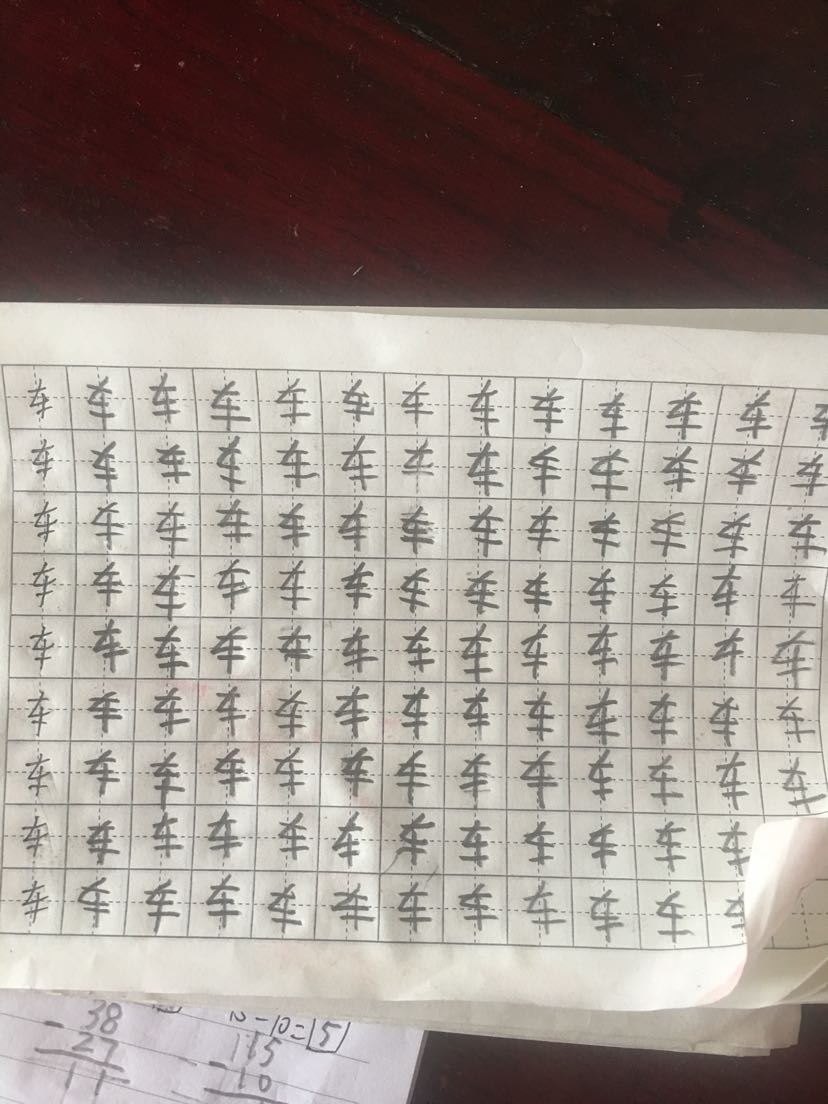 车车车车车车车车车车车车车
车车车车车车车车车车车车车
车车车车车车车车车车车车车
车车车车车车车车车车车车车
车车车车车车车车车车车车车
车车车车车车车车车车车车车
车车车车车车车车车车车车车
车车车车车车车车车车车车
车车车车车车车车车车车
15-10=5
38
-27
11
115
-10